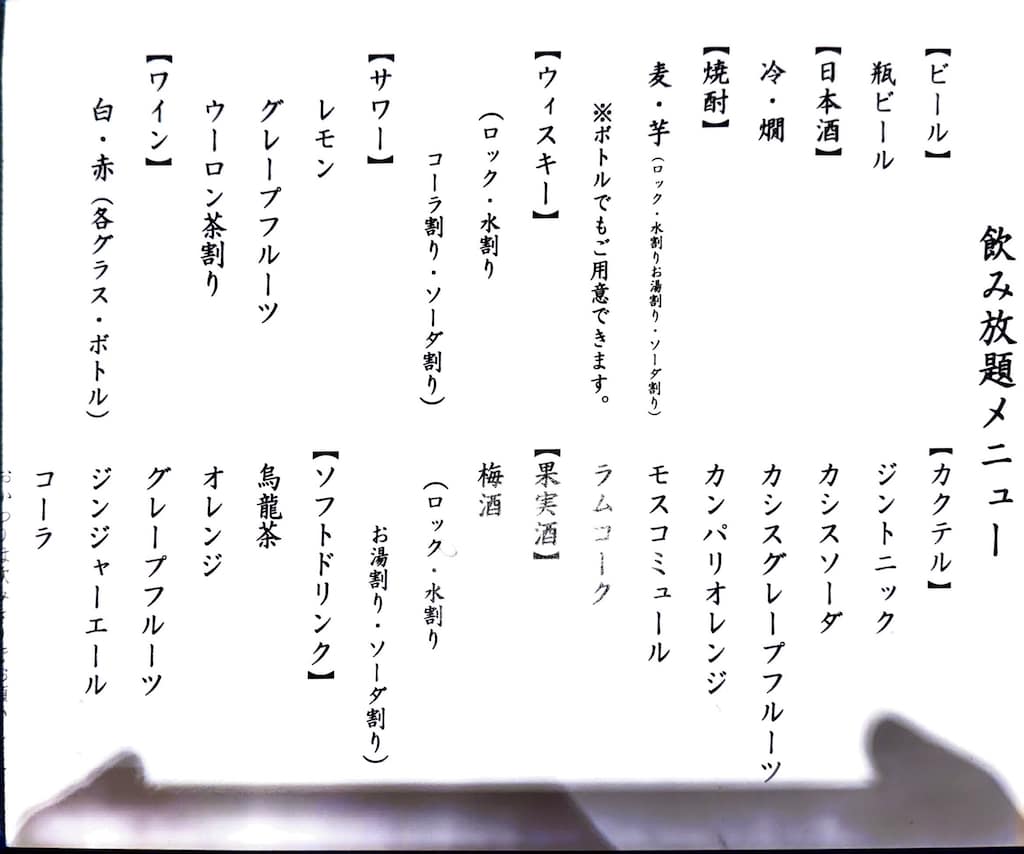 飲み放題メニュー
【ビール】
瓶ビール
【日本酒】
冷・燗
【焼酎】
麦・芋(ロック・水割りお湯割り・ソーダ割り)
※ボトルでもご用意できます。
【ウィスキー】
(ロック・水割り
コーラ割り・ソーダ割り)
【サワー】
レモン
グレープフルーツ
ウーロン茶割り
【ワイン】
白・赤(各グラス・ボトル)
【カクテル】
ジントニック
カシスソーダ
カシスグレープフルーツ
カンパリオレンジ
モスコミュール
ラムコーク
【果実酒】
梅酒
(ロック・水割り
お湯割り・ソーダ割り)
【ソフトドリンク】
烏龍茶
オレンジ
グレープフルーツ
ジンジャーエール
コーラ